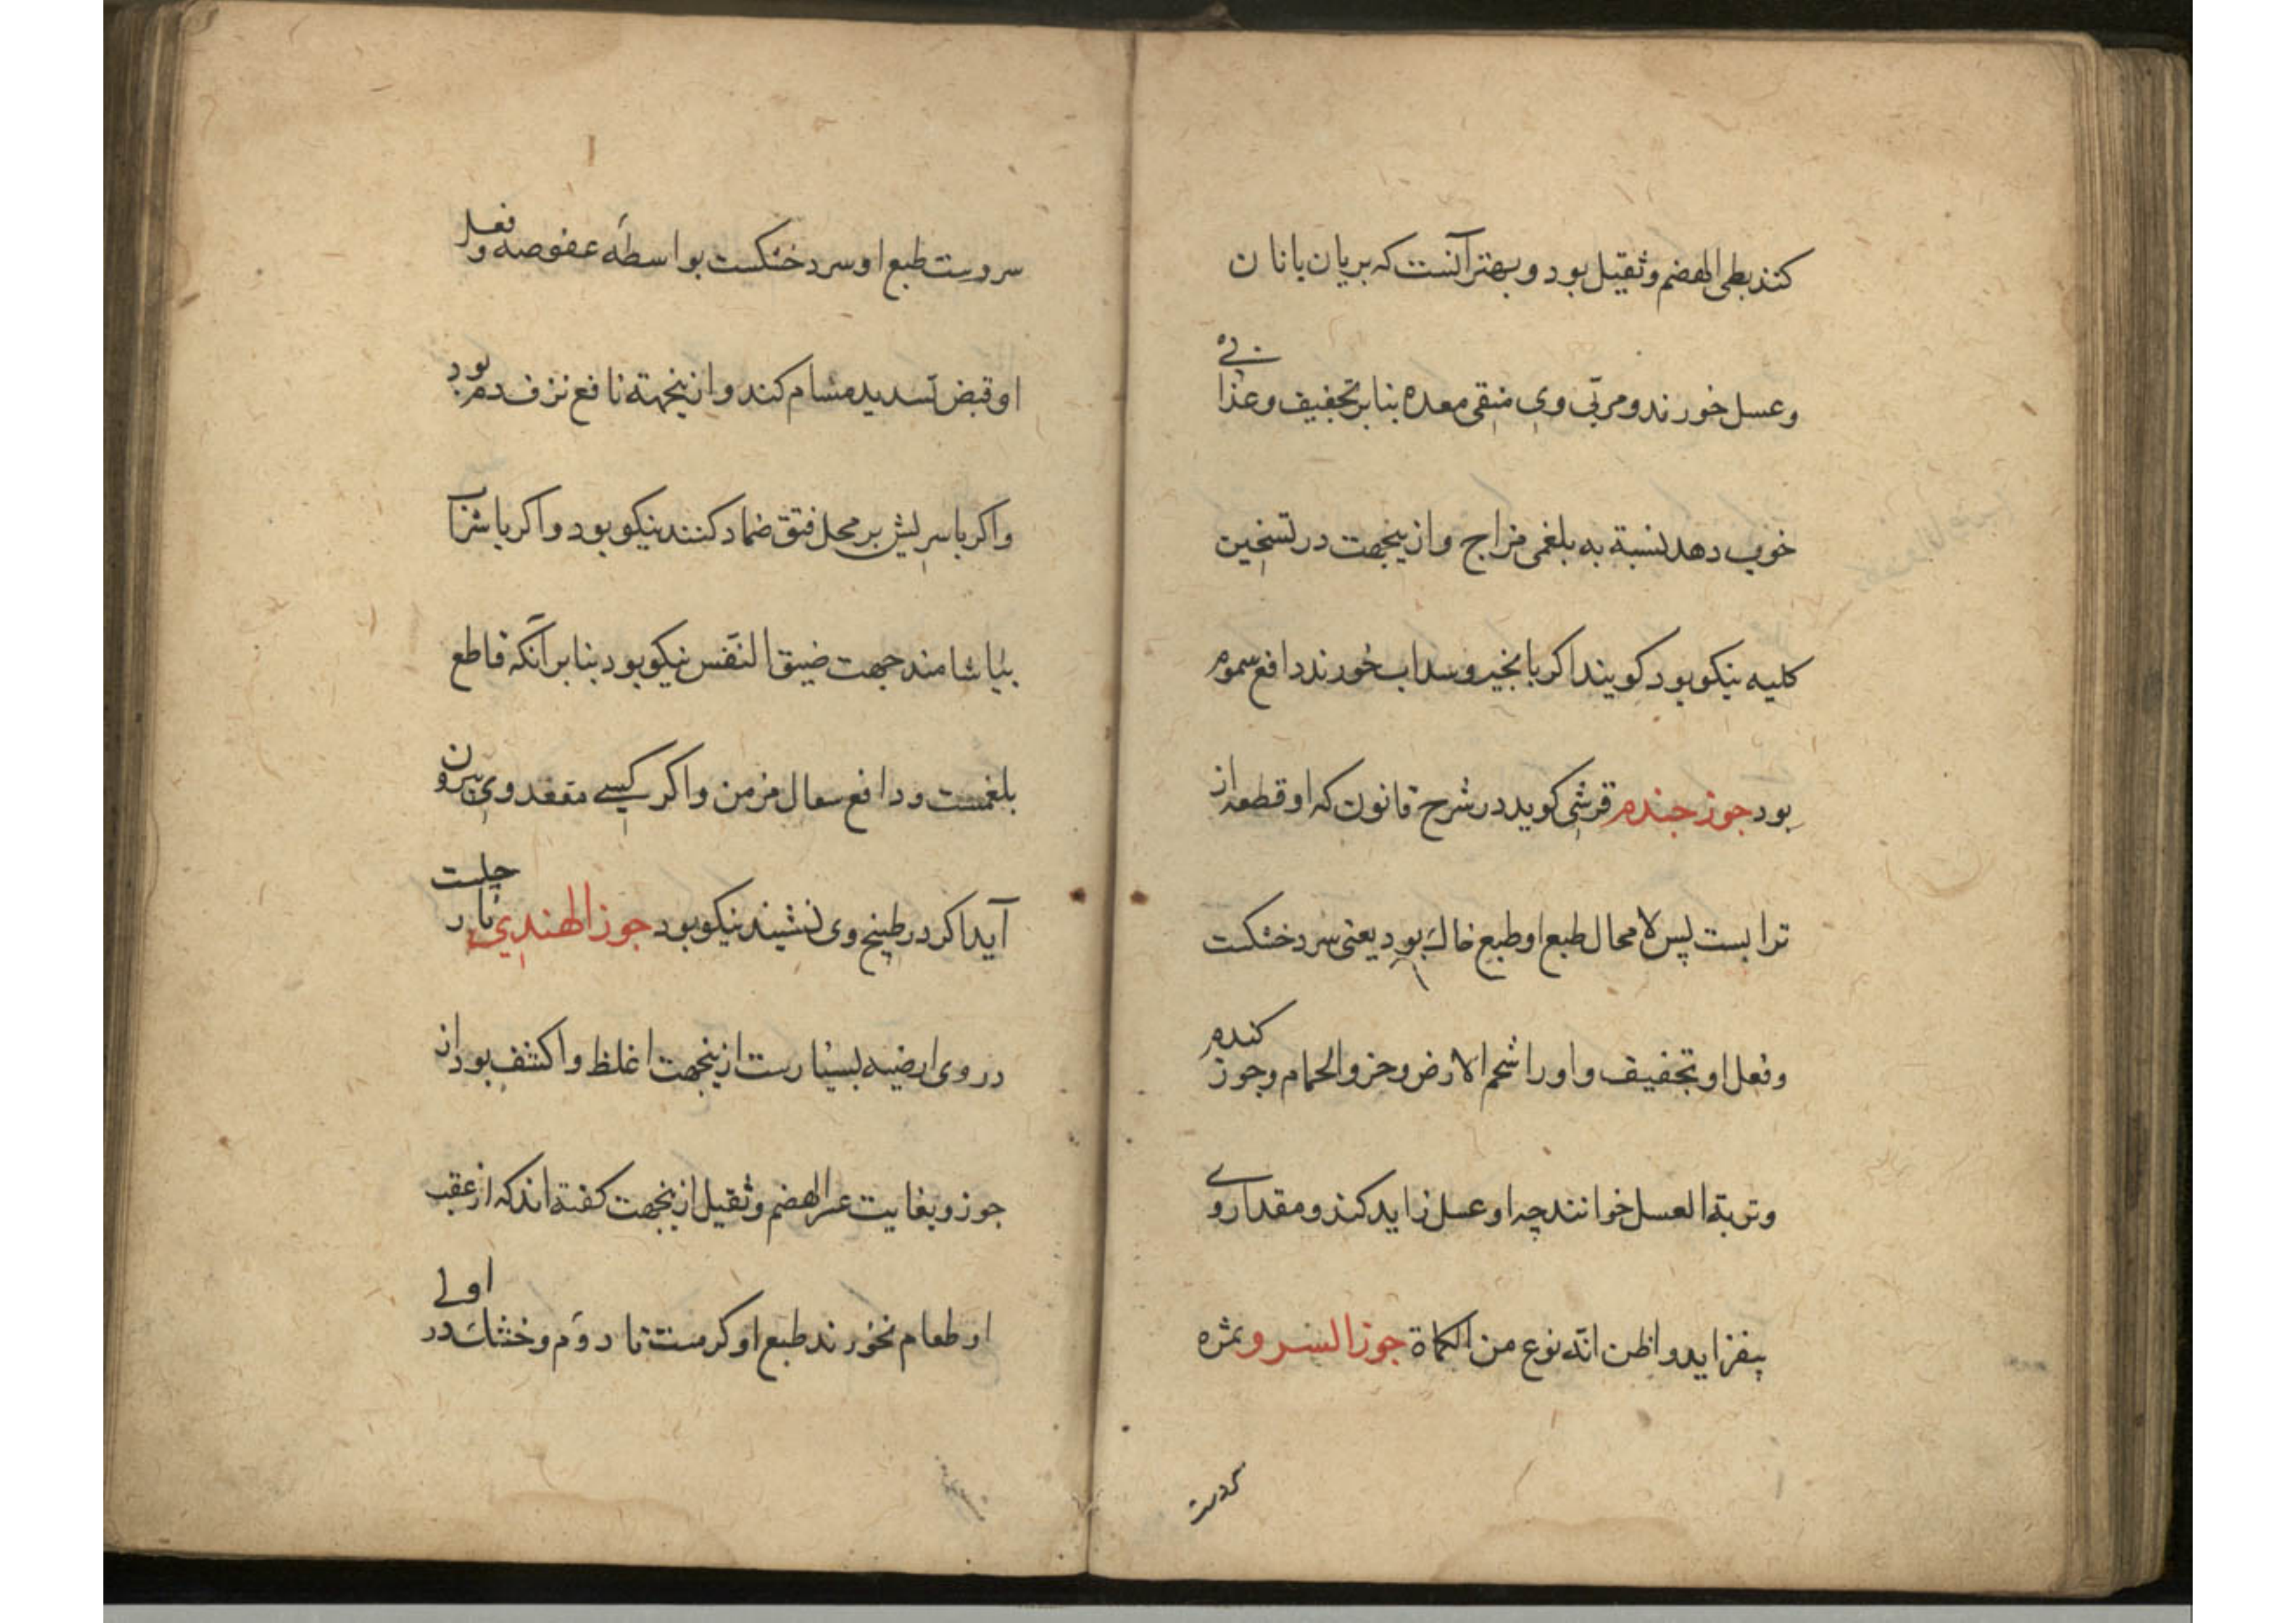 کنند بطی الهضم و ثقیل بود و بهتر آنست که بریان با نان
و عسل خورند و مربّی وی منقی معده بنا بر تجفیف و غذائی
خوب دهد نسبة به بلغمی مزاج و ازینجهت در تسخین
کلیه نیکو بود کویند اکر با انجیر و سداب خورند دافع سموم
بود جوز جندم قرشی کوید در شرح قانون که او قطعه از
ترابست پس لا محال طبع او طبع خاک بود یعنی سرد خشکست
و فعل او تجفیف و او را شحم الارض و خرو الحمام و جوز کندم
و تربة العسل خوانند چه او عسل زاید کند و مقدار وی
بیفزاید و اظن انّه نوع من الکماة جوز السرو ثمره
سروست
سروست طبع او سرد خشکست بواسطهٔ عفوصه و فعل
او قبض تسدید مشام کند و ازینجهته نافع نزف دم بود
و اکر با سریش بر محل فتق ضماد کنند نیکو بود و اکر با شراب
بیاشامند جهت ضیق النفس نیکو بود بنا بر آنکه قاطع
بلغمست و دافع سعال مزمن و اکر کیسی مقعد وی بیرون
آید اکر در طبیخ وی نشیند نیکو بود جوز الهندی نارجلست
در وی ارضیه بسیارست ازینجهت اغلظ و اکثف بود از
جوز و بغایت عسر الهضم و ثقیل ازینجهت کفته اند که از عقب
او طعام نخورند طبع او کرمست تا دوم و خشک در اولی